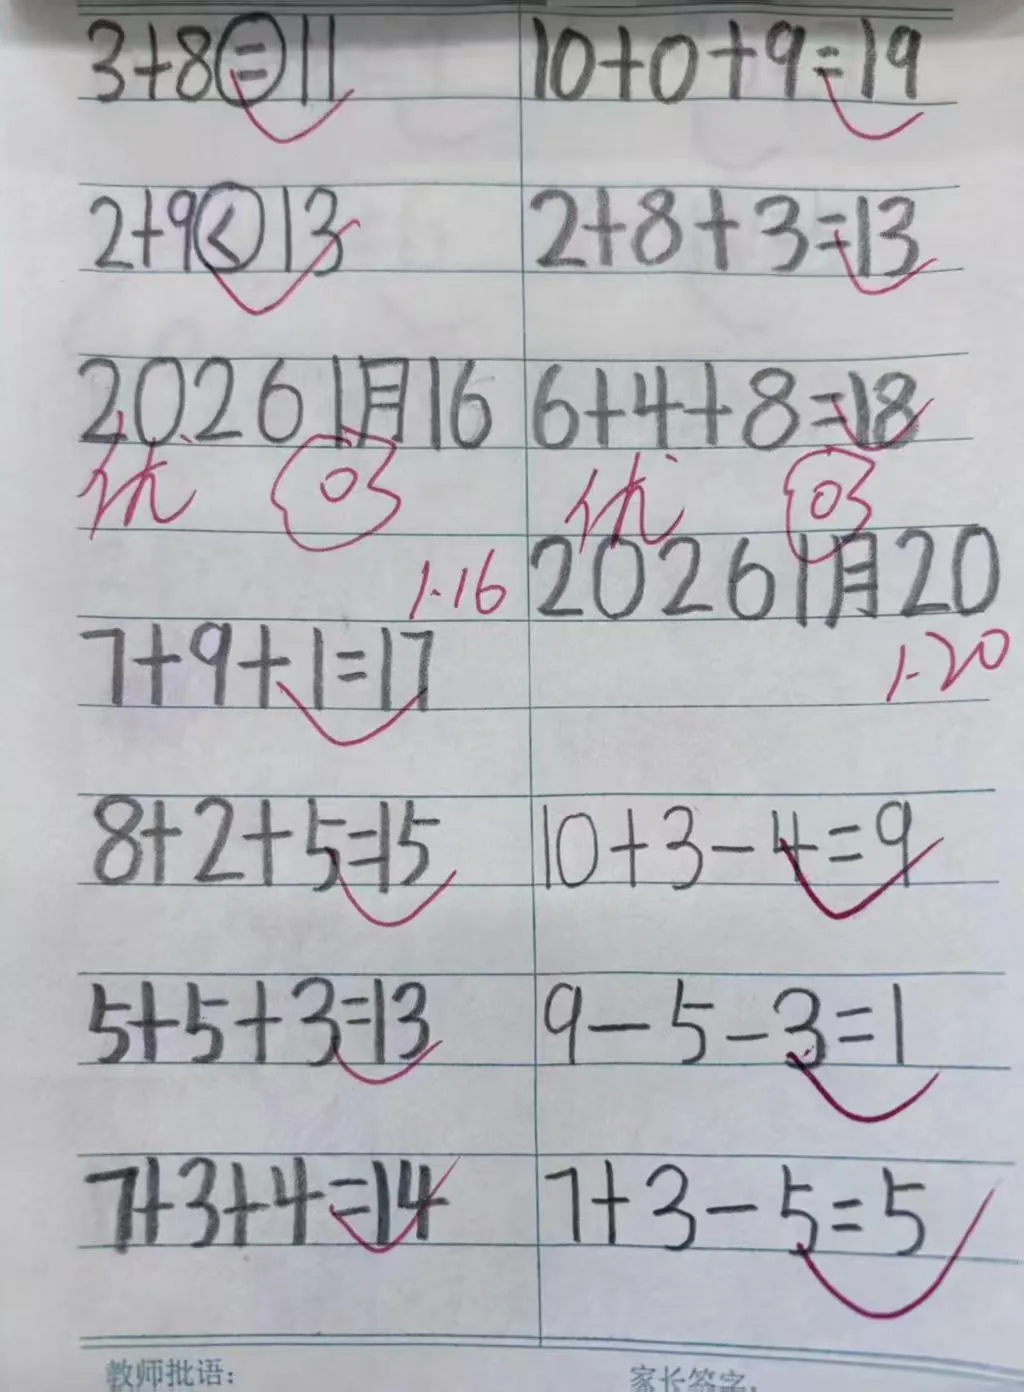 3+8=11
2+9<13
2026 1月16
优
1.16
7+9+1=17
8+2+5=15
5+5+3=13
7+3+4=14
10+0+9=19
2+8+3=13
6+4+8=18
优
2026 1月20
1.20
10+3-4=9
9-5-3=1
7+3-5=5
教师批语:
家长签字: